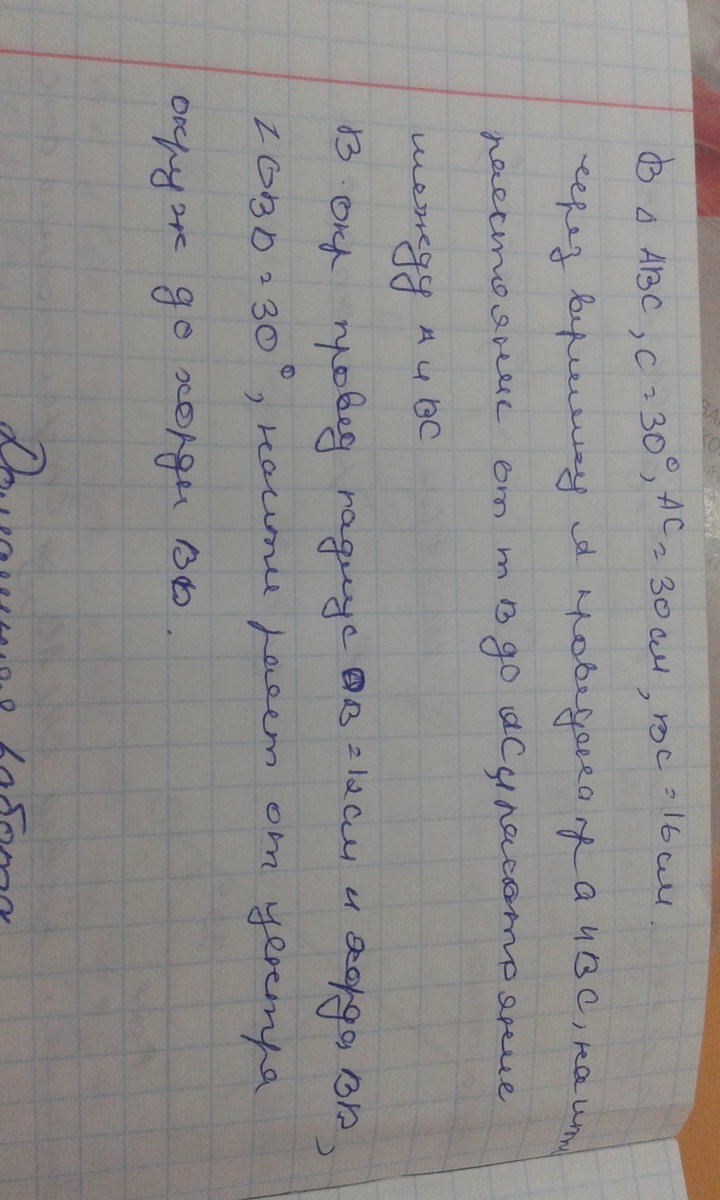 В Δ ABC, C = 30°, AC = 30см, BC = 16см.
через вершину А проведена пр а и ВС, найти
расстояние от т В до АС и расстояние
между А и ВС
В окр провед радиус ОВ = 12см и хорда ВD,
∠OBD = 30°, найти раст от центра
окруж до хорды ВD.
Домашняя работа